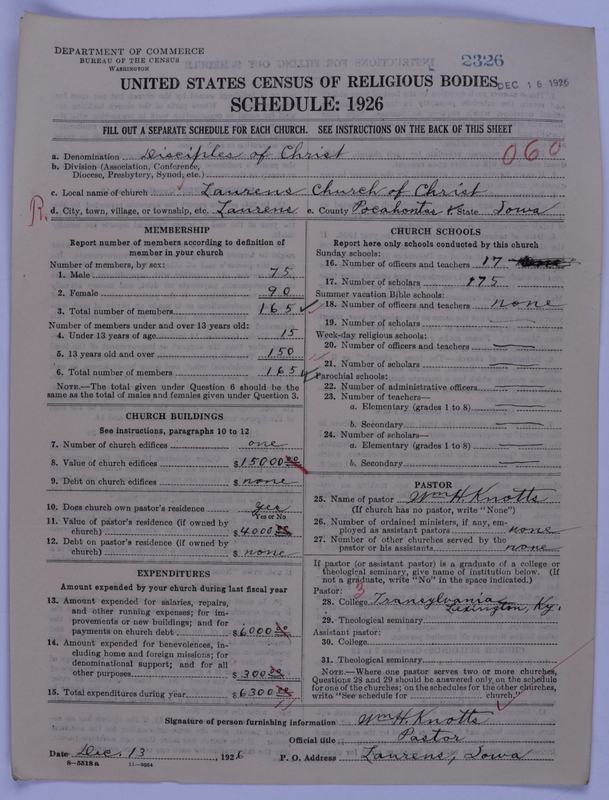 DEPARTMENT OF COMMERCE
BUREAU OF THE CENSUS
WASHINGTON
2326
UNITED STATES CENSUS OF RELIGIOUS BODIES
DEC 16 1926
SCHEDULE: 1926
FILL OUT A SEPARATE SCHEDULE FOR EACH CHURCH. SEE INSTRUCTIONS ON THE BACK OF THIS SHEET
a. Denomination Disciples of Christ
060
b. Division (Association, Conference,
Diocese, Presbytery, Synod, etc.)
c. Local name of church Laurens Church of Christ
R.
d. City, town, village, or township, etc. Laurens e. County Pocahontas State Iowa
MEMBERSHIP
Report number of members according to definition of
member in your church
Number of members, by sex:
1. Male 75
2. Female 90
3. Total number of members 165
Number of members under and over 13 years old:
4. Under 13 years of age 15
5. 13 years old and over 150
6. Total number of members 165
NOTE.—The total given under Question 6 should be the
same as the total of males and females given under Question 3.
CHURCH BUILDINGS
See instructions, paragraphs 10 to 12
7. Number of church edifices one
8. Value of church edifices $15000 00
9. Debt on church edifices $none
10. Does church own pastor's residence yes
Yes or No
11. Value of pastor's residence (if owned by
church) $4000 00
12. Debt on pastor's residence (if owned by
church) $none
EXPENDITURES
Amount expended by your church during last fiscal year
13. Amount expended for salaries, repairs,
and other running expenses; for im-
provements or new buildings; and for
payments on church debt $6000 00
14. Amount expended for benevolences, in-
cluding home and foreign missions; for
denominational support; and for all
other purposes $300 00
15. Total expenditures during year $6300 00
CHURCH SCHOOLS
Report here only schools conducted by this church
Sunday schools:
16. Number of officers and teachers 17
17. Number of scholars 175
Summer vacation Bible schools:
18. Number of officers and teachers none
19. Number of scholars
Week-day religious schools:
20. Number of officers and teachers
21. Number of scholars
Parochial schools:
22. Number of administrative officers
23. Number of teachers—
a. Elementary (grades 1 to 8)
b. Secondary
24. Number of scholars—
a. Elementary (grades 1 to 8)
b. Secondary
PASTOR
25. Name of pastor Wm H. Knotts
(If church has no pastor, write "None")
26. Number of ordained ministers, if any, em-
ployed as assistant pastors none
27. Number of other churches served by the
pastor or his assistants none
If pastor (or assistant pastor) is a graduate of a college or
theological seminary, give name of institution below. (If
not a graduate, write "No" in the space indicated.)
Pastor: 3
28. College Transylvania
Lexington, Ky.
29. Theological seminary
Assistant pastor:
30. College
31. Theological seminary
NOTE.—Where one pastor serves two or more churches,
Questions 28 and 29 should be answered only on the schedule
for one of the churches; on the schedules for the other churches,
write "See schedule for church."
Signature of person furnishing information Wm H. Knotts
Official title Pastor
Date Dec. 13 1926 P. O. Address Laurens, Iowa
8-5518a 11-9084